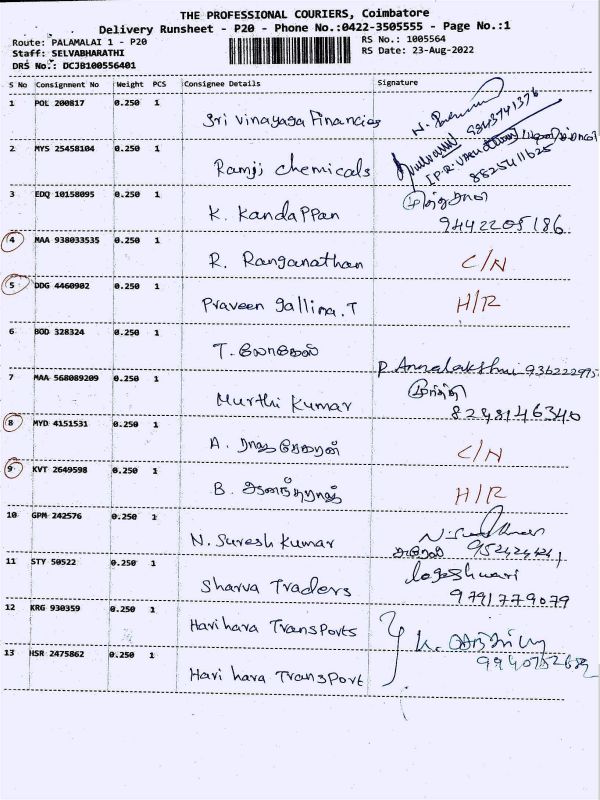 THE PROFESSIONAL COURIERS, Coimbatore
Delivery Runsheet - P20 - Phone No.:0422-3505555 - Page No.:1
Route: PALAMALAI 1 - P20
RS No.: 1005564
Staff: SELVABHARATHI
RS Date: 23-Aug-2022
DRS No.: DCJB100556401
S No Consignment No Weight PCS Consignee Details Signature
1 POL 200817 0.250 1 Sri Vinayaga Financies 9843741376
2 MYS 25458104 0.250 1 Ramji Chemicals 8825411625
3 EDQ 10158095 0.250 1 K. Kandappan 9442205186
4 MAA 938033535 0.250 1 R. Ranganathan C/N
5 DDG 4460902 0.250 1 Praveen gallina.T H/R
6 BOD 328324 0.250 1 T. P. Annalakshmi
7 MAA 568089209 0.250 1 Murthi Kumar 8248146340
8 MYD 4151531 0.250 1 A. C/N
9 KVT 2649598 0.250 1 B. H/R
10 GPM 242576 0.250 1 N. Suresh Kumar
11 STY 50522 0.250 1 Sharva Traders logeshwari 9791779079
12 KRG 930359 0.250 1 Hari hara Transports K.
13 HSR 2475862 0.250 1 Hari hara Transport